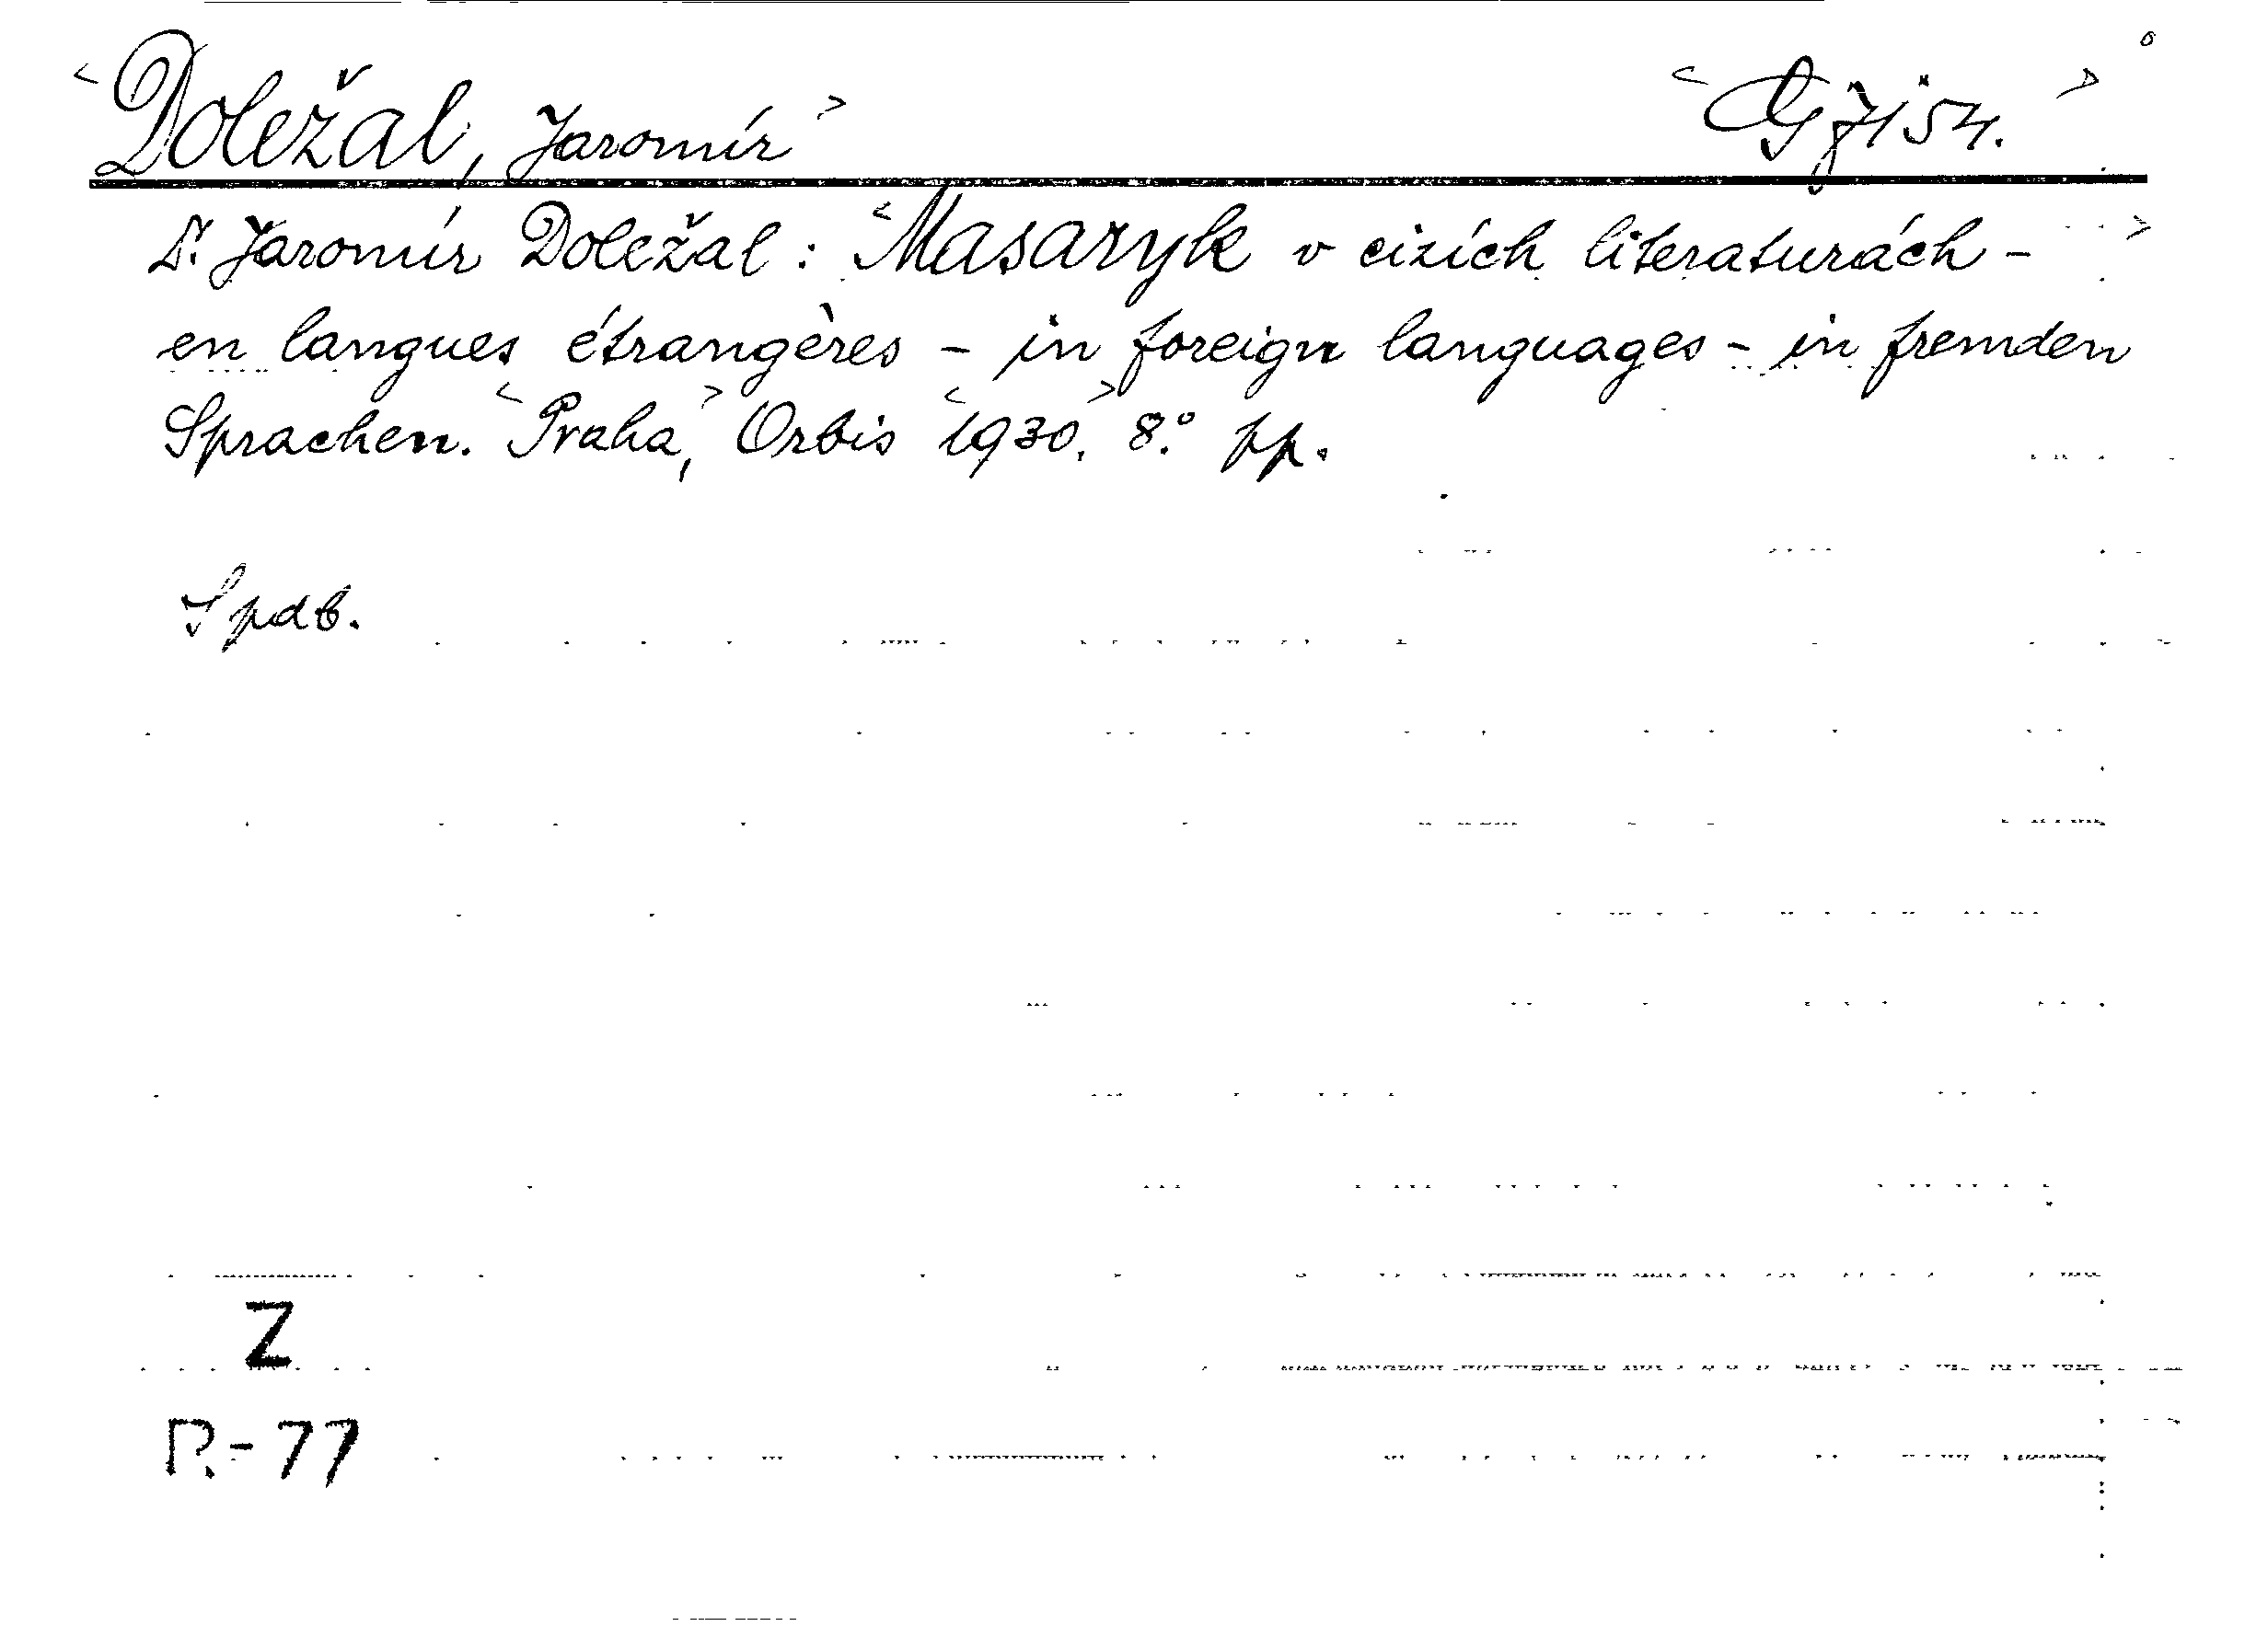 <Doležal, Jaromír> <G 7154.>
D. Jaromír Doležal: <Masaryk v cizích literaturách - >
en langues étrangères - in foreign languages - in fremden
Sprachen. <Praha,> Orbis <1930.> 8.° pp.
Spdb.
Z
R-77